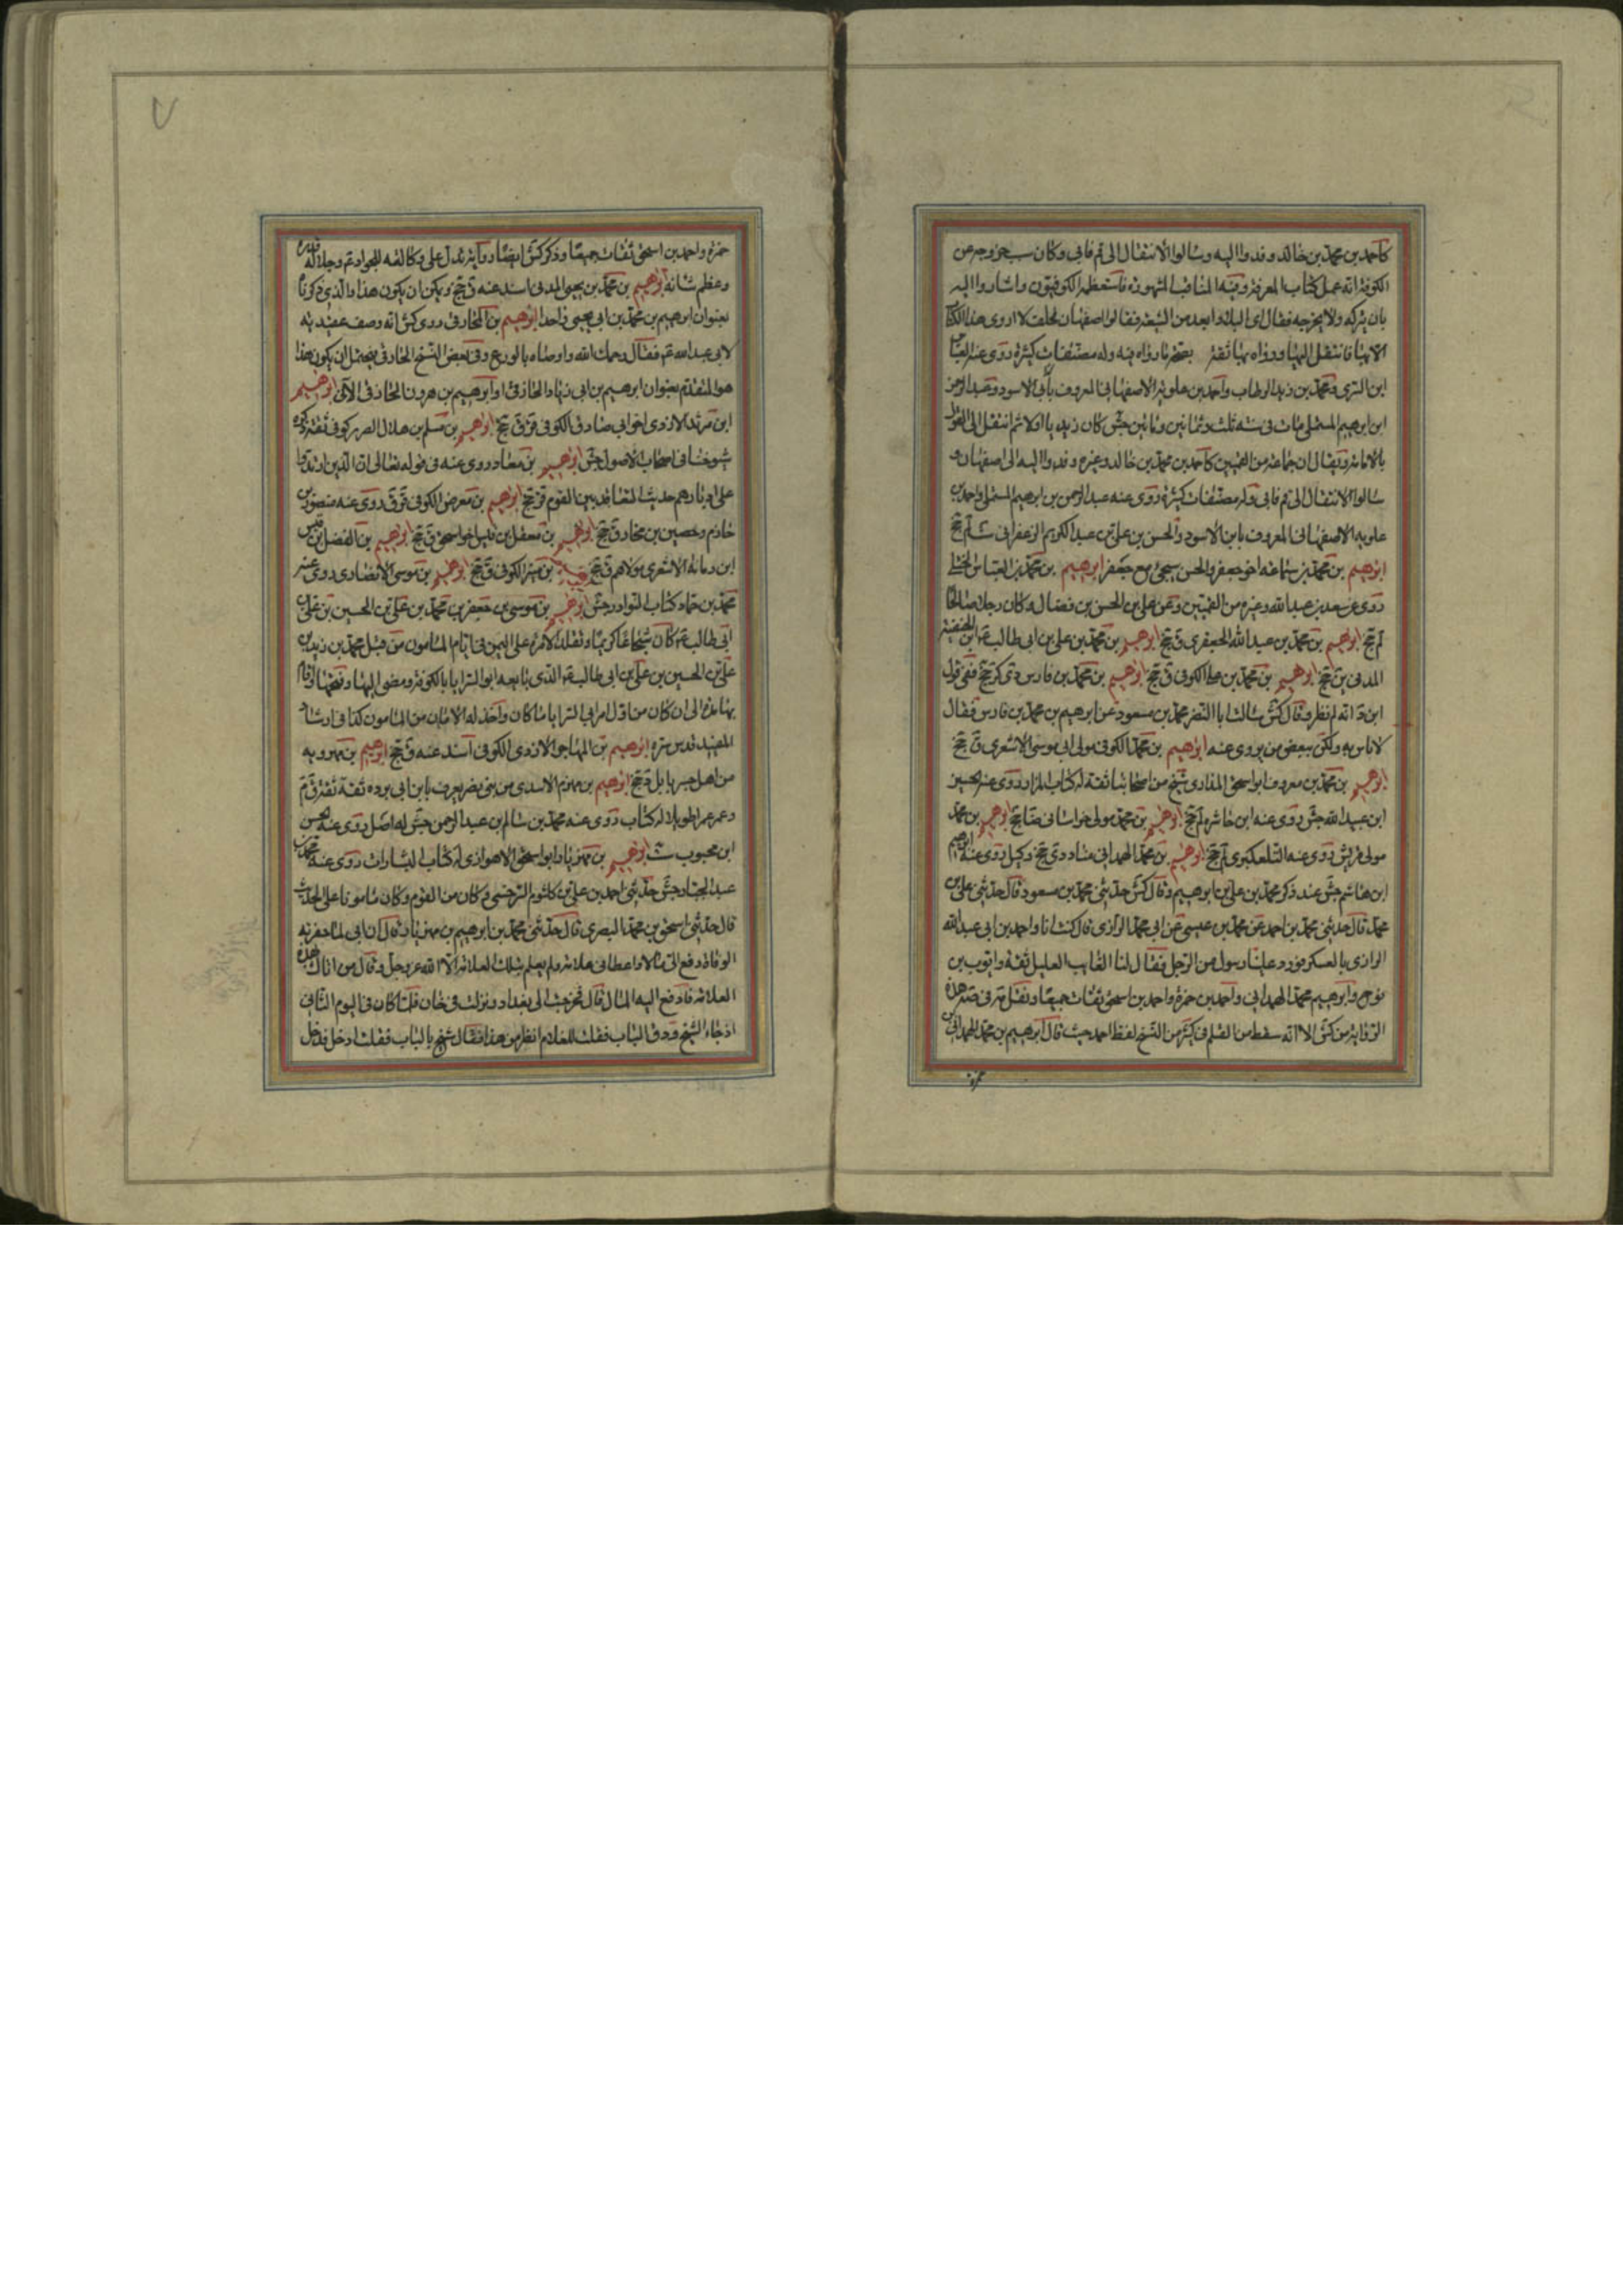 كاحمد بن محمد بن خالد وفدوا اليه وسالوا الانتقال الى قم فابى وكان سبب خروجه من
الكوفة انه عمل كتاب المعرفة وفيه المناقب المشهورة فاستعظمه الكوفيون واشاروا اليه
بان يتركه ولا يخرجه فقال اى البلاد ابعد من الشيعة فقالوا اصفهان فحلف لا اروى هذا الكتاب
الا بها فانتقل اليها ورواه بها ثقة بصحة ما رواه فيه وله مصنفات كثيرة روى عنه العباس
ابن السرى ومحمد بن زيد الرطاب واحمد بن علويه الاصفهانى المعروف بابى الاسود وعبد الرحمن
ابن ابرهيم المستملى مات فى سنة ثلث وثمانين ومائتين جش كان زيديا اولا ثم انتقل الى القول
بالامامة ويقال ان جماعة من القميين كاحمد بن محمد بن خالد وغيره وفدوا اليه الى اصفهان و
سالوا الانتقال الى قم فابى وله مصنفات كثيرة روى عنه عبد الرحمن بن ابرهيم المستملى واحمد بن
علويه الاصفهانى المعروف بابن الاسود والحسن بن على بن عبد الكريم الزعفرانى ست لم جخ
ابرهيم بن محمد بن سماعه اخو جعفر والحسن سيجئ مع جعفر ابرهيم بن محمد بن العباس الختلى
روى عن سعد بن عبد الله وغيره من القميين وعن على بن الحسن بن فضال وكان رجلا صالحا
لم جخ ابرهيم بن محمد بن عبد الله الجعفرى ق جخ ابرهيم بن محمد بن على بن ابى طالب ع ابن الحنفية
المدنى ين جخ ابرهيم بن محمد بن الكوفى ق جخ ابرهيم بن محمد بن فارس دى كر جخ ففى قول
ابن د انه لم نظر وقال كش سالت ابا النضر محمد بن مسعود عن ابرهيم بن محمد بن فارس فقال
لا باس به ولكن ببعض من يروى عنه ابرهيم بن محمد الكوفى مولى ابى موسى الاشعرى ق جخ
ابرهيم بن محمد بن معروف ابو اسحق المذارى شيخ من اصحابنا ثقة له كتاب المزار روى عنه الحسين
ابن عبيد الله جش روى عنه ابن حاشر لم جخ ابرهيم بن محمد مولى خراسانى ضا جخ ابرهيم بن محمد
مولى قريش روى عنه التلعكبرى لم جخ ابرهيم بن محمد الهمدانى ضا د دى جخ وكيل روى عنه ابرهيم
ابن هاشم جش عند ذكر محمد بن على بن ابرهيم وقال كش حدثنى محمد بن مسعود قال حدثنى على بن
محمد قال حدثنى محمد بن احمد عن محمد بن عيسى عن ابى محمد الرازى قال كنت انا واحمد بن ابى عبد الله
الرازى بالعسكر فورد علينا رسول من الرجل فقال لنا الغايب العليل ثقة وايوب بن
نوح وابرهيم بن محمد الهمدانى واحمد بن حمزة واحمد بن اسحق ثقات جميعا ونقل مه فى صه هذه
الرواية من كش الا انه سقط من القلم فى كثير من النسخ لفظ احمد حيث قال ابرهيم بن محمد الهمدانى بن
حمزة
حمزة واحمد بن اسحق ثقات جميعا وذكر كش ايضا رواية تدل على وكالته للجواد ع وجلالة قدره
وعظم شانه ابرهيم بن محمد بن يحيى المدنى اسند عنه ق جخ ويمكن ان يكون هذا والذى ذكرنا
بعنوان ابرهيم بن محمد بن ابى يحيى واحدا ابرهيم بن المخارقى روى كش انه وصف عقيدته
لابى عبد الله ع فقال رحمك الله واوصاه بالورع وفى بعض النسخ الخارفى فيحتمل ان يكون هذا
هو المتقدم بعنوان ابرهيم بن ابى زياد الخارفى او ابرهيم بن هرون الخارفى الآتى ابرهيم
ابن مرثد الازدى اخو ابى صادق الكوفى قر ق جخ ابرهيم بن مسلم بن هلال الضرير كوفى ثقة ذكره
شيوخنا فى اصحاب الاصول جش ابرهيم بن معاذ روى عنه فى قوله تعالى ان الذين ارتدوا
على ادبارهم حديث التعاقد بين القوم قر جخ ابرهيم بن معرض الكوفى قر ق روى عنه منصور بن
حازم وحصين بن مخارق ق جخ ابرهيم بن معقل بن قيس اخو اسحق ق جخ ابرهيم بن المفضل بن قيس
ابن رمانة الاشعرى مولاهم ق جخ ابرهيم بن منير الكوفى ق جخ ابرهيم بن موسى الانصارى روى عنه
محمد بن حماد كتاب النوادر جش ابرهيم بن موسى بن جعفر بن محمد بن على بن الحسين بن على بن
ابى طالب ع كان شجاعا كريما وتقلد الامرة على اليمن فى ايام المامون من قبل محمد بن زيد بن
على بن الحسين بن على بن ابى طالب ع الذى بايعه ابو السرايا بالكوفة ومضى اليها وفتحها واقام
بها مدة الى ان كان من امر ابى السرايا ما كان واخذ له الامان من المامون كذا فى ارشاد
المفيد قدس سره ابرهيم بن المهاجر الازدى الكوفى اسند عنه ق جخ ابرهيم بن مهرويه
من اهل جسر بابل د جخ ابرهيم بن مهزم الاسدى من بنى نصر يعرف بابن ابى بردة ثقة ثقة ق م
وعمر عمرا طويلا له كتاب روى عنه محمد بن سالم بن عبد الرحمن جش له اصل روى عنه الحسن
ابن محبوب ست ابرهيم بن مهزيار ابو اسحق الاهوازى له كتاب البشارات روى عنه محمد بن
عبد الجبار جش حدثنى احمد بن على بن كلثوم السرخسى وكان من القوم وكان مامونا على الحديث
قال حدثنى اسحق بن محمد البصرى قال حدثنى محمد بن ابرهيم بن مهزيار قال ان ابى لما حضرته
الوفاة دفع الى مالا واعطانى علامة ولم يعلم بتلك العلامة الا الله عز وجل وقال من اتاك بهذه
العلامة فادفع اليه المال قال فخرجت الى بغداد ونزلت فى خان فلما كان فى اليوم الثانى
اذ جاء الشيخ ودق الباب فقلت للغلام انظر من هذا فقال شيخ بالباب فقلت ادخل فدخل